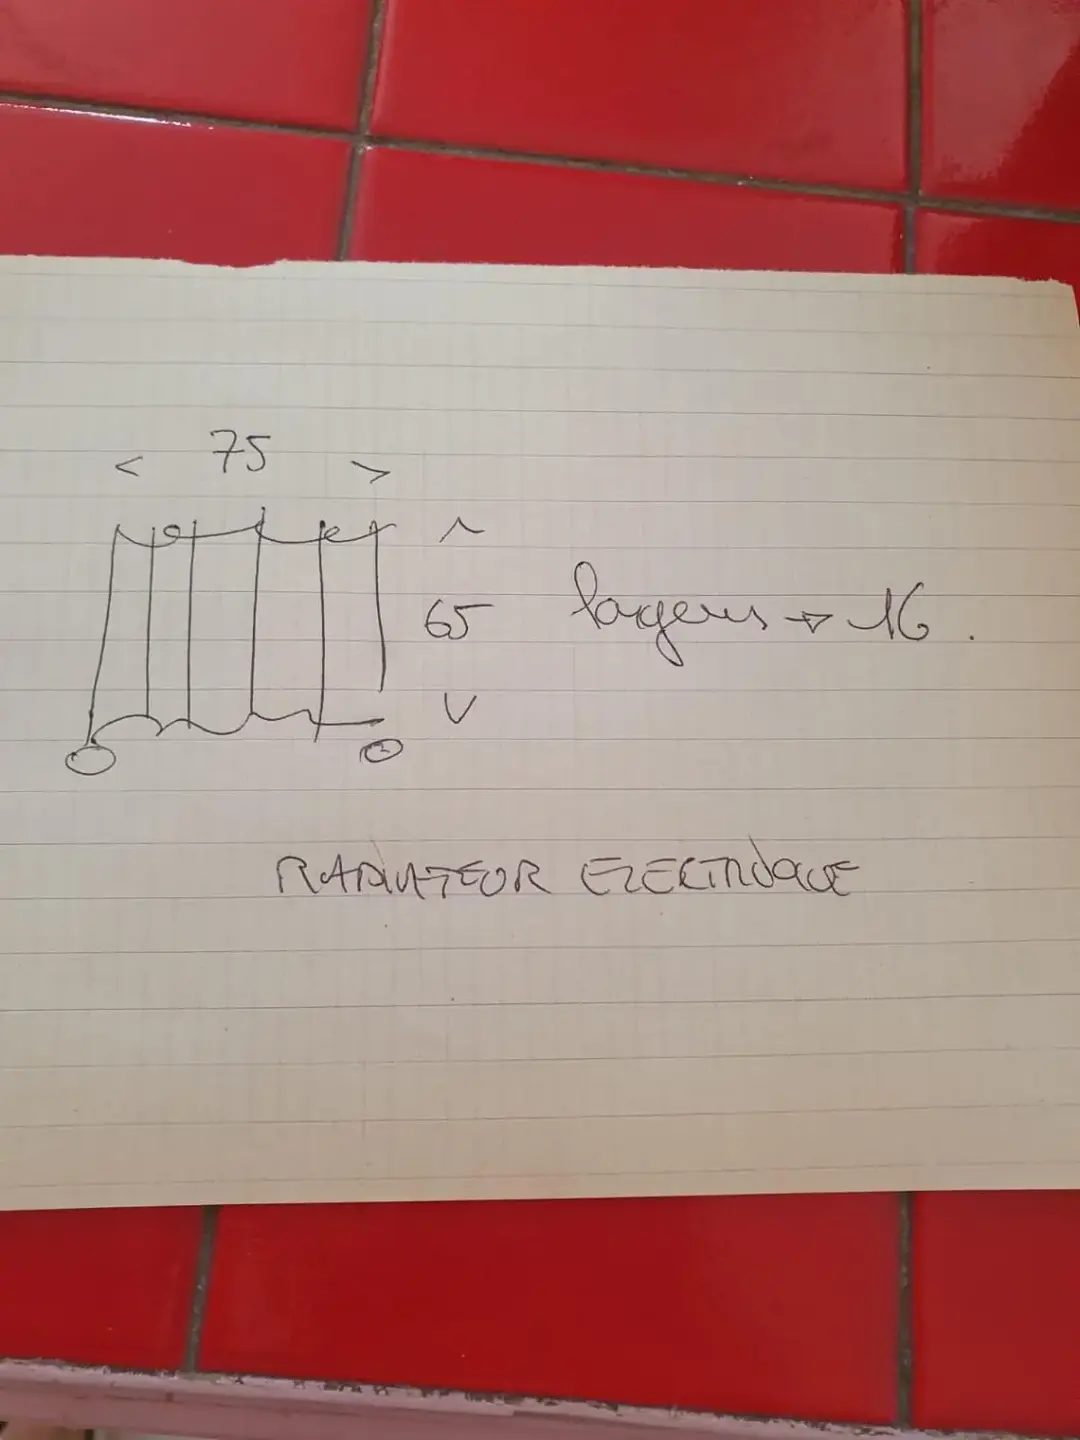 < 75 >
^
65 largeur → 16.
v
RADIATEUR ELECTRIQUE